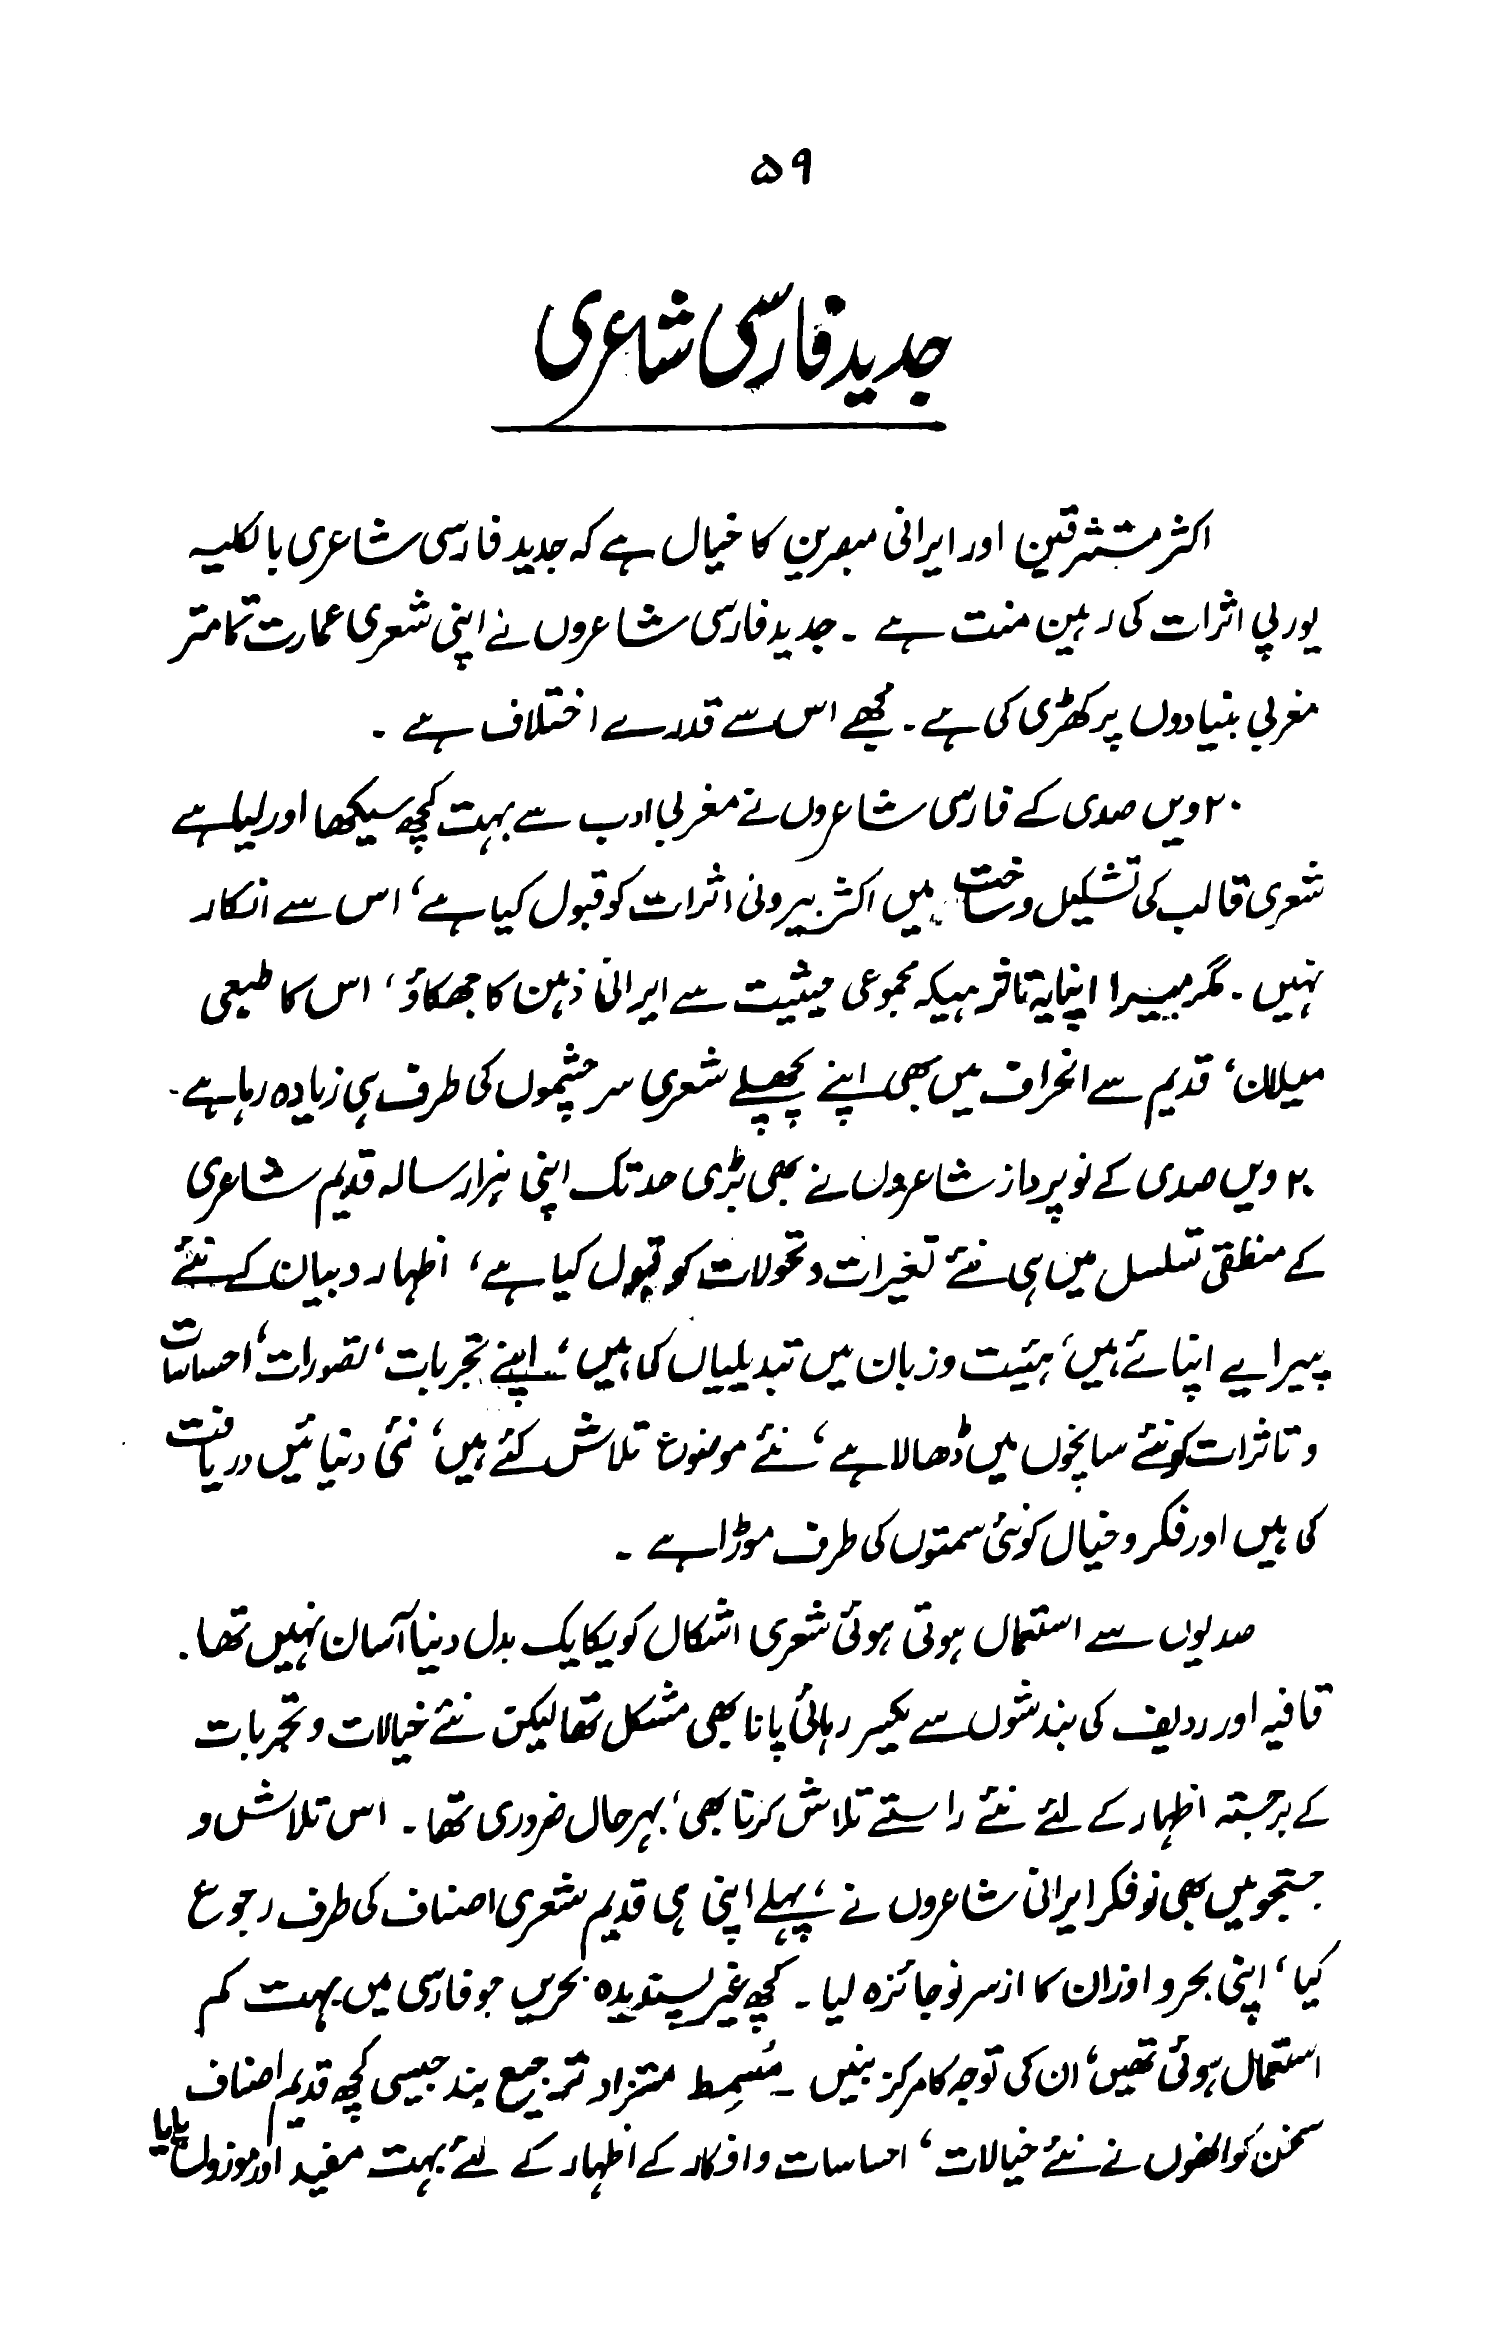 ۵۹
جدید فارسی شاعری
اکثر مستشرقین اور ایرانی مبصرین کا خیال ہے کہ جدید فارسی شاعری بالکلیہ
یورپی اثرات کی رہین منت ہے ۔ جدید فارسی شاعروں نے اپنی شعری عمارت تمامتر
مغربی بنیادوں پر کھڑی کی ہے ۔ مجھے اس سے قدرے اختلاف ہے ۔
۲۰ ویں صدی کے فارسی شاعروں نے مغربی ادب سے بہت کچھ سیکھا اور لیا ہے
شعری قالب کی تشکیل و ساخت میں اکثر بیرونی اثرات کو قبول کیا ہے، اس سے انکار
نہیں ۔ مگر میرا اپنا یہ تاثر ہیکہ مجموعی حیثیت سے ایرانی ذہن کا جھکاؤ، اس کا طبعی
میلان، قدیم سے انحراف میں بھی اپنے پچھلے شعری سرچشموں کی طرف ہی زیادہ رہا ہے۔
۲۰ ویں صدی کے نوپرداز شاعروں نے بھی بڑی حد تک اپنی ہزار سالہ قدیم شاعری
کے منطقی تسلسل میں ہی نئے تغیرات و تحولات کو قبول کیا ہے، اظہار و بیان کے نئے
پیرایے اپنائے ہیں، ہئیت و زبان میں تبدیلیاں کی ہیں، اپنے تجربات، تصورات، احساسات
و تاثرات کو نئے سانچوں میں ڈھالا ہے، نئے موضوع تلاش کئے ہیں، نئی دنیائیں دریافت
کی ہیں اور فکر و خیال کو نئی سمتوں کی طرف موڑا ہے ۔
صدیوں سے استعمال ہوتی ہوئی شعری اشکال کو یکایک بدل دینا آسان نہیں تھا ۔
قافیہ اور ردیف کی بندشوں سے یکسر رہائی پانا بھی مشکل تھا لیکن نئے خیالات و تجربات
کے برجستہ اظہار کے لئے نئے راستے تلاش کرنا بھی، بہرحال ضروری تھا ۔ اس تلاش و
جستجو میں بھی نوفکر ایرانی شاعروں نے، پہلے اپنی ہی قدیم شعری اصناف کی طرف رجوع
کیا، اپنی بحر و اوزان کا از سر نو جائزہ لیا ۔ کچھ غیر پسندیدہ بحریں جو فارسی میں بہت کم
استعمال ہوئی تھیں، ان کی توجہ کا مرکز بنیں ۔ مُسمِط مستزاد ترجیع بند جیسی کچھ قدیم اصناف
سخن کو انھوں نے نئے خیالات، احساسات و افکار کے اظہار کے لئے بہت مفید اور موزوں پایا